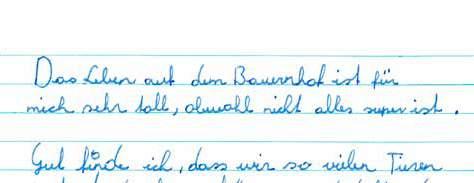 Das Leben auf dem Bauernhof ist für
mich sehr toll, obwohl nicht alles super ist.
Gut finde ich, dass wir so vielen Tieren